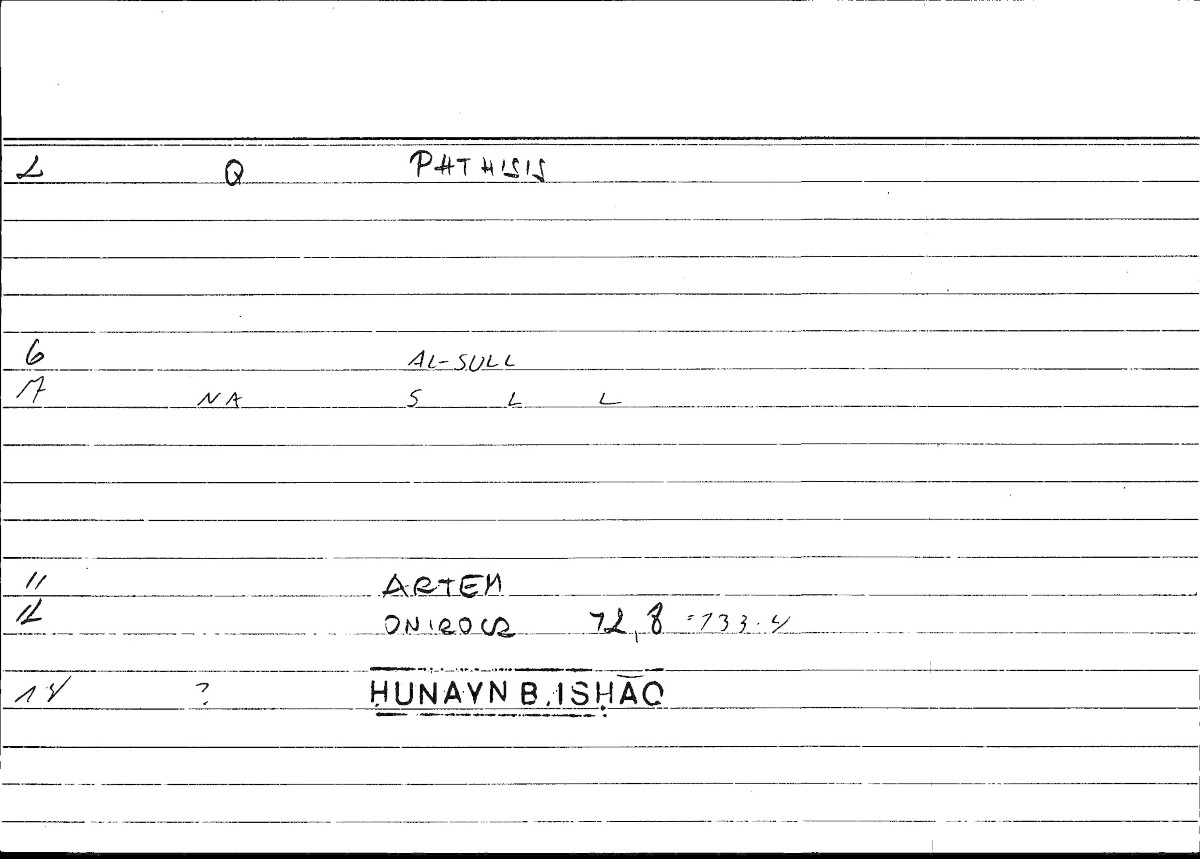 2 Q PHTHISIS
6 AL-SULL
7 NA S L L
11 ARTEM
12 ONIROCR 72,8 =133.4
14 ? ḤUNAYN B. ISḤĀQ